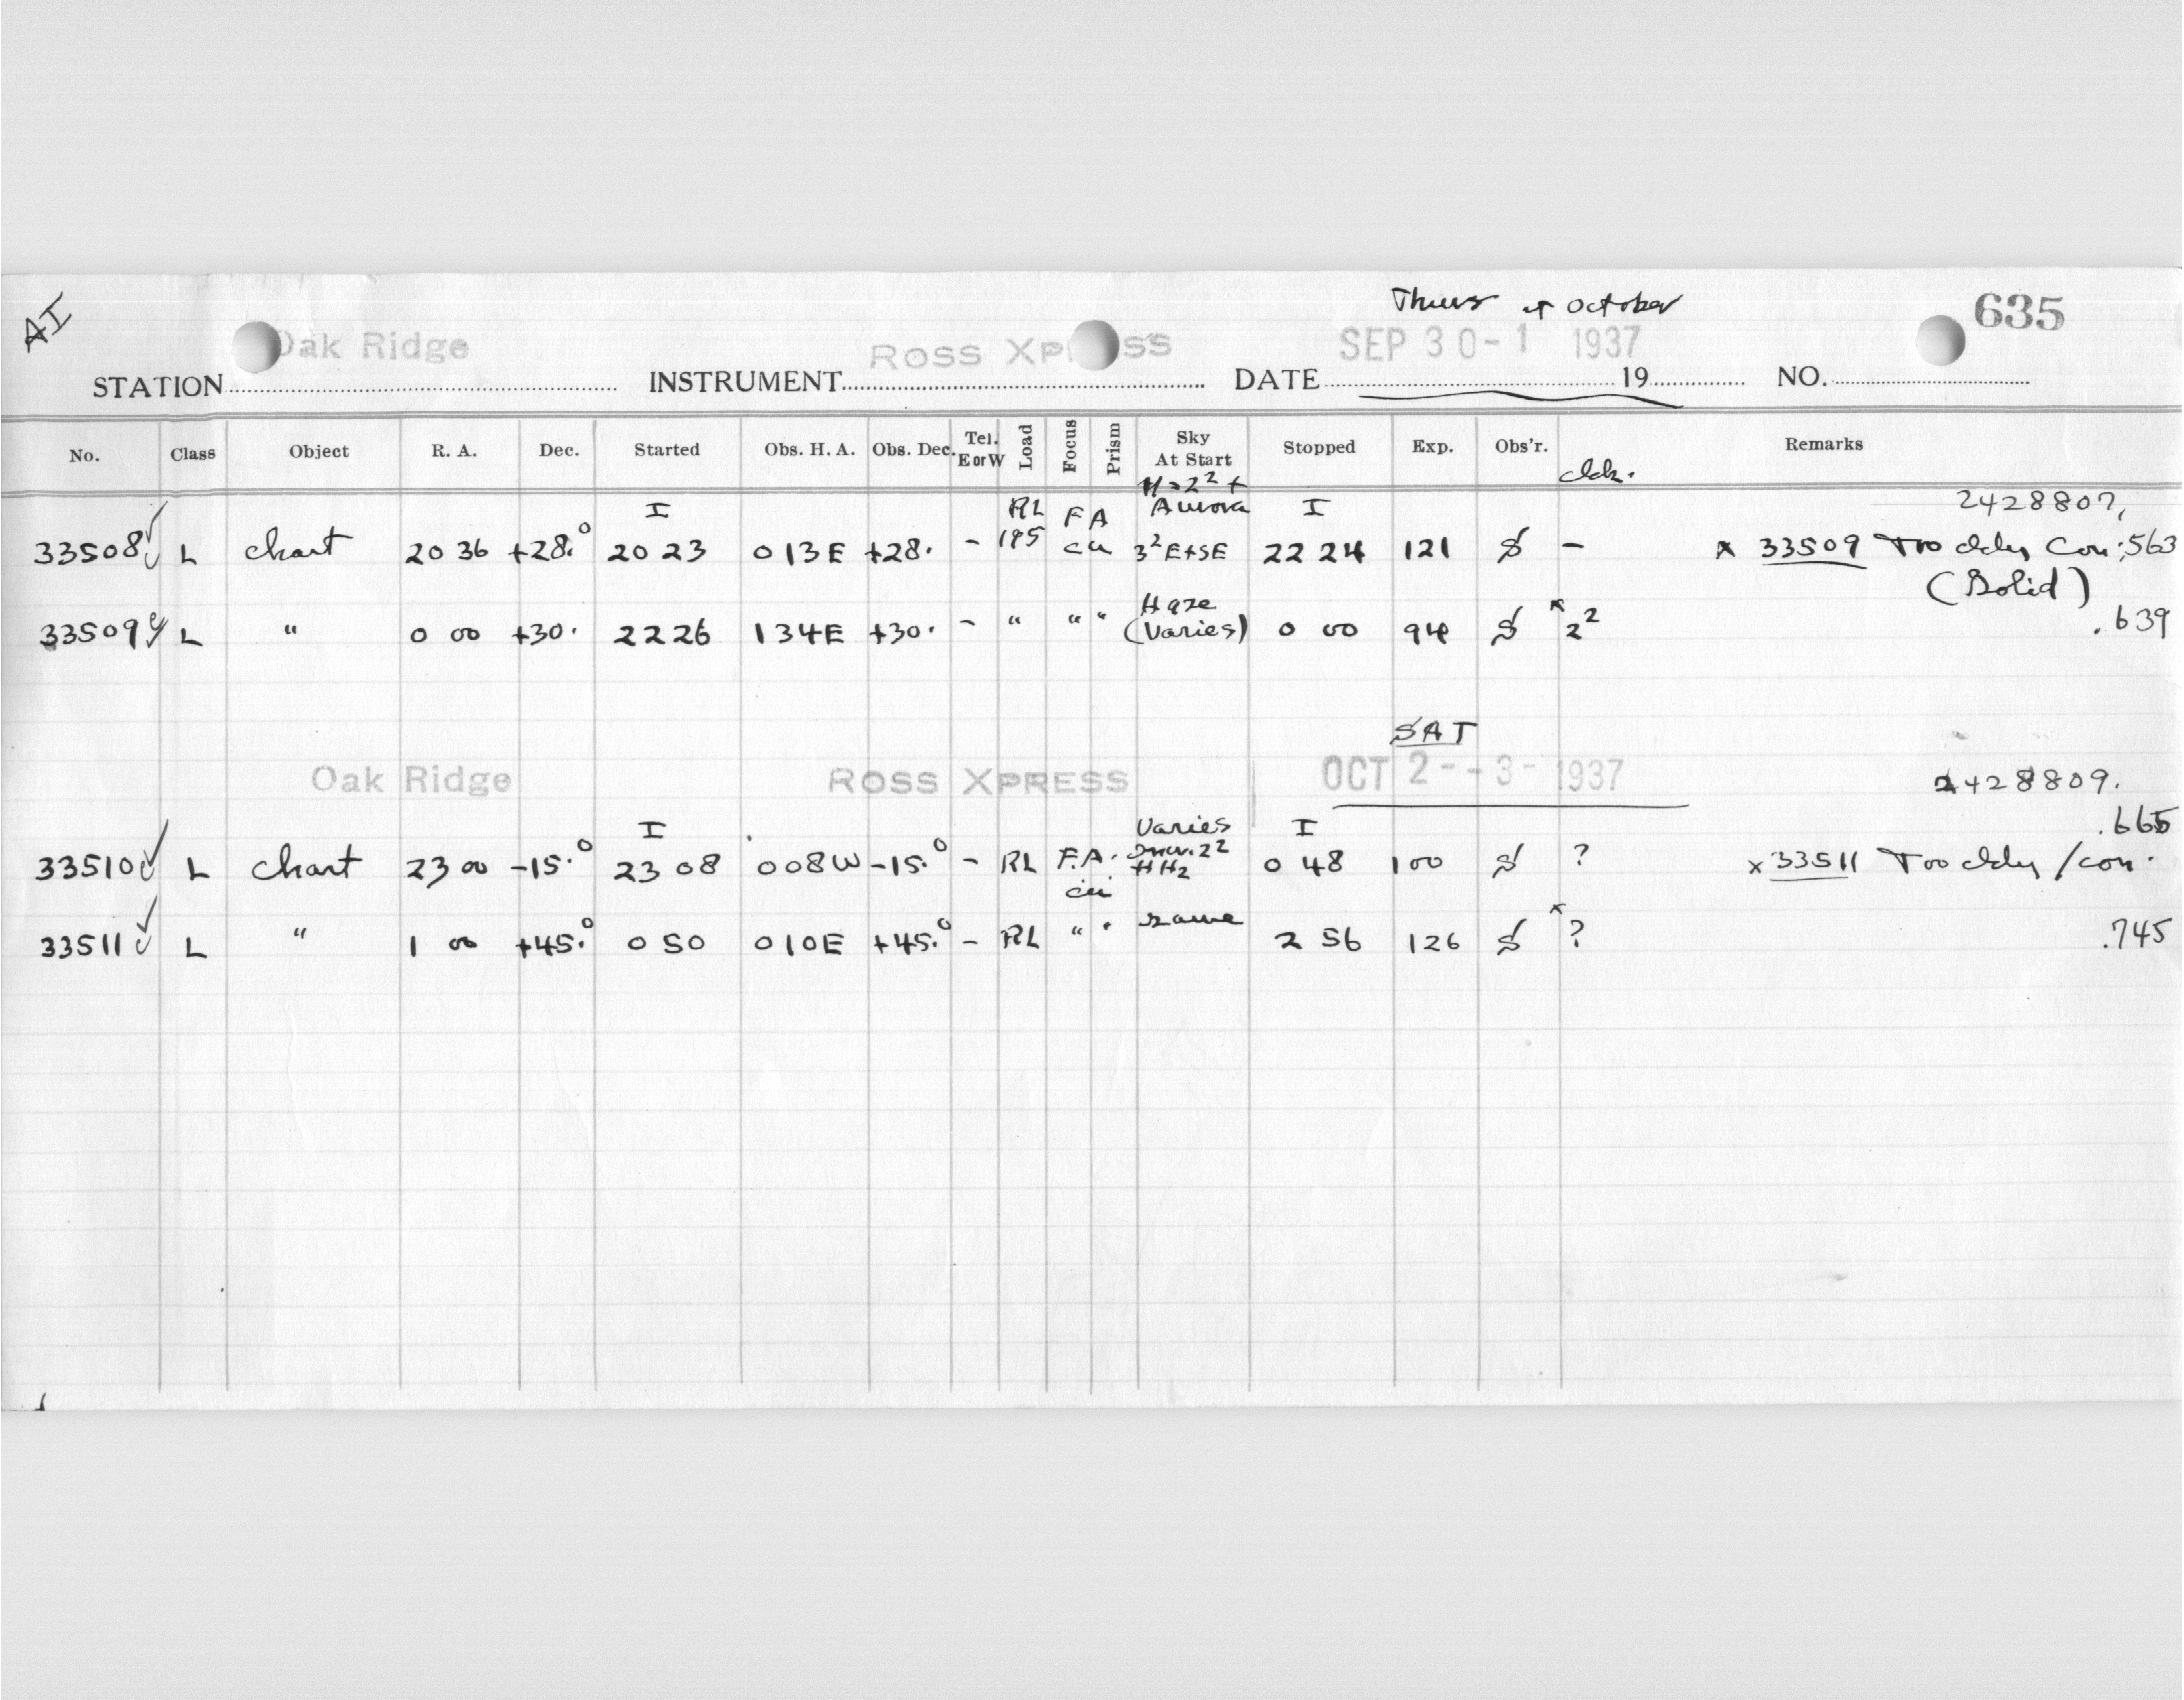 AI
Thurs + October
635
Oak Ridge ROSS XPRESS SEP 30-1 1937
STATION INSTRUMENT DATE 19 NO.
No. Class Object R. A. Dec. Started Obs. H. A. Obs. Dec. Tel. E or W Load Focus Prism Sky At Start Stopped Exp. Obs'r. cldn. Remarks
H>2² +
I RL FA Aurora I 2428807,
33508 L chart 20 36 +28.° 20 23 0 13 E +28. - 195 cu 3² E+SE 22 24 121 S - x 33509 Too cldy Con. .563
(Bolid)
Haze
33509 L " 0 00 +30. 22 26 1 34 E +30. - " " " (Varies) 0 00 94 S x 2² .639
SAT
Oak Ridge ROSS XPRESS OCT 2 - -3- 1937
2428809.
I Varies I .665
33510 L chart 23 00 -15.° 23 08 0 08 W -15.° - RL F.A. 2² 0 48 100 S ? x 33511 Too cldy / con.
cu HH2
33511 L " 1 00 +45.° 0 50 0 10 E +45.° - RL " " same 2 56 126 S x ? .745